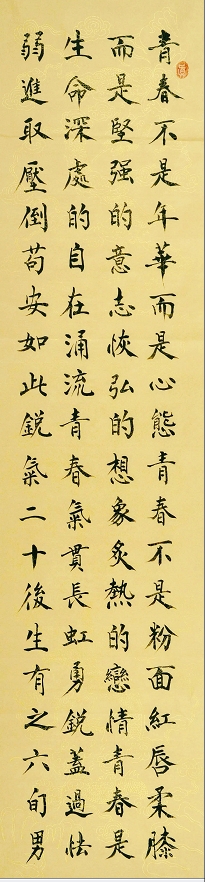 青春不是年華而是心態青春不是粉面紅唇柔膝
而是堅强的意志恢弘的想象炙熱的戀情青春是
生命深處的自在涌流青春氣貫長虹勇銳蓋過怯
弱進取壓倒苟安如此銳氣二十後生有之六旬男